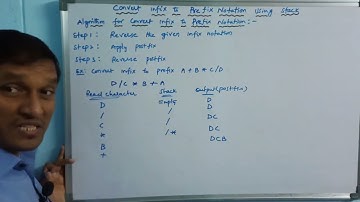 Convert infix to Prefix Notation Using Stack
Algorithm for Convert Infix to Prefix Notation:-
Step1: Reverse the given infix notation
Step2: Apply postfix
Step3: Reverse postfix
Ex: Convert infix to prefix A + B * C/D
D/C * B + A
Read character Stack output(postfix)
D Empty D
/ / D
C / DC
* /* DC
B DCB
+